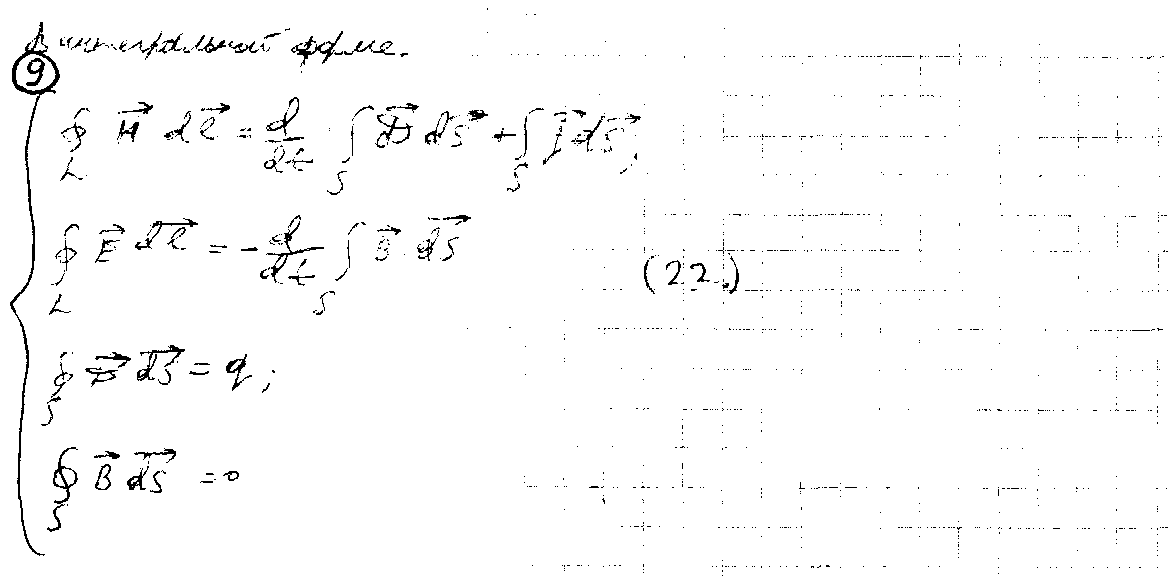 В интегральной форме.
9
∮_L H⃗ dl⃗ = d/dt ∫_S D⃗ dS⃗ + ∫_S I⃗ dS⃗ ;
∮_L E⃗ dl⃗ = - d/dt ∫_S B⃗ dS⃗
(22.)
∮_S D⃗ dS⃗ = q ;
∮_S B⃗ dS⃗ = 0